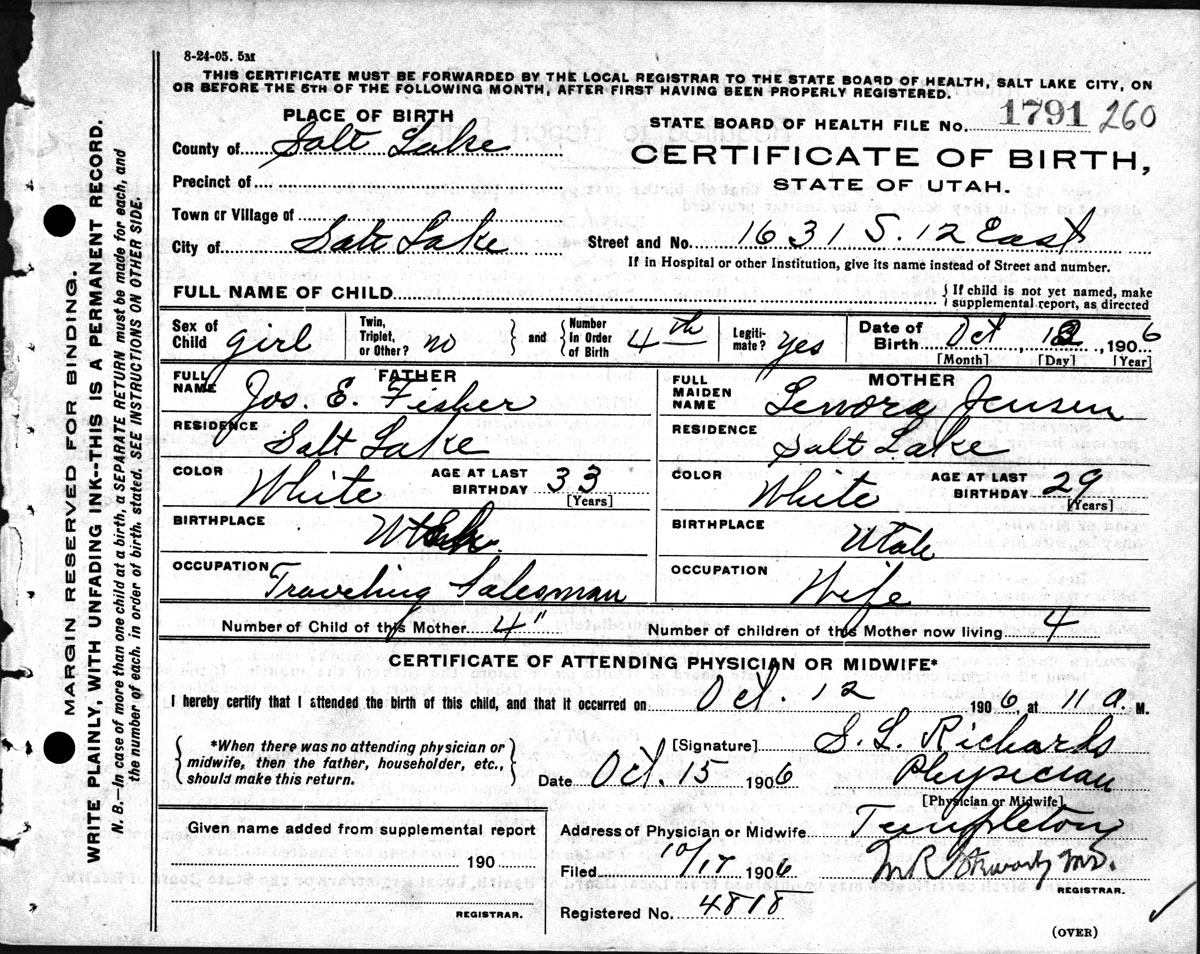 8-24-05. 5M
THIS CERTIFICATE MUST BE FORWARDED BY THE LOCAL REGISTRAR TO THE STATE BOARD OF HEALTH, SALT LAKE CITY, ON
OR BEFORE THE 5TH OF THE FOLLOWING MONTH, AFTER FIRST HAVING BEEN PROPERLY REGISTERED.
PLACE OF BIRTH
STATE BOARD OF HEALTH FILE No. 1791 260
County of Salt Lake
CERTIFICATE OF BIRTH,
Precinct of
STATE OF UTAH.
Town or Village of
City of Salt Lake
Street and No. 1631 S. 12 East
If in Hospital or other Institution, give its name instead of Street and number.
FULL NAME OF CHILD
{ If child is not yet named, make
supplemental report, as directed
Sex of Child girl
Twin, Triplet, or Other? no
} and { Number in Order of Birth 4th
Legitimate? yes
Date of Birth Oct , 12 , 1906
[Month] [Day] [Year]
FATHER
FULL NAME Jos. E. Fisher
RESIDENCE Salt Lake
COLOR White AGE AT LAST BIRTHDAY 33
[Years]
BIRTHPLACE Utah.
OCCUPATION Traveling Salesman
MOTHER
FULL MAIDEN NAME Lenora Jensen
RESIDENCE Salt Lake
COLOR White AGE AT LAST BIRTHDAY 29
[Years]
BIRTHPLACE Utah
OCCUPATION Wife
Number of Child of this Mother 4" Number of children of this Mother now living 4
CERTIFICATE OF ATTENDING PHYSICIAN OR MIDWIFE*
I hereby certify that I attended the birth of this child, and that it occurred on Oct. 12 1906, at 11 a. M.
{ *When there was no attending physician or
midwife, then the father, householder, etc.,
should make this return. }
[Signature] S. L. Richards
Date Oct. 15 1906 Physician
[Physician or Midwife]
Given name added from supplemental report
190
REGISTRAR.
Address of Physician or Midwife Templeton
Filed 10/17 1906
REGISTRAR.
Registered No. 4818
(OVER)
MARGIN RESERVED FOR BINDING.
WRITE PLAINLY, WITH UNFADING INK--THIS IS A PERMANENT RECORD.
N. B.—In case of more than one child at a birth, a SEPARATE RETURN must be made for each, and
the number of each, in order of birth, stated. SEE INSTRUCTIONS ON OTHER SIDE.